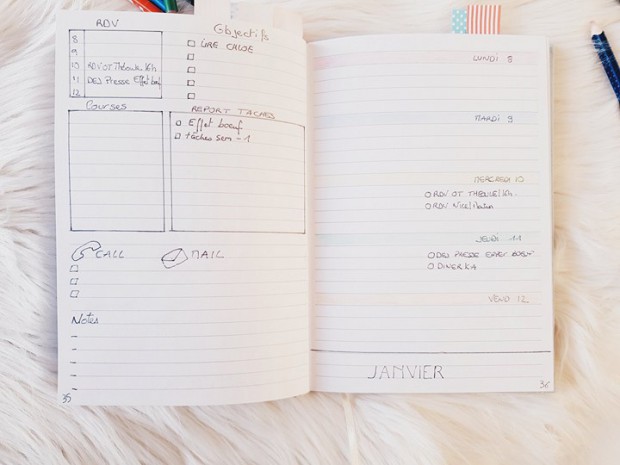 RDV
8
9
10 RDV OT Théoule 16h
11 DEJ Presse Effet boeuf
12
Objectifs
LIRE CHLOE
Courses
REPORT TACHES
Effet boeuf
tâches sem -1
CALL
MAIL
Notes
-
-
-
-
35
LUNDI 8
MARDI 9
MERCREDI 10
RDV OT THEOULE 16h.
RDV Nice
JEUDI 11
DEJ PRESSE EFFET BOEUF
DINER KA
VEND 12
JANVIER
36